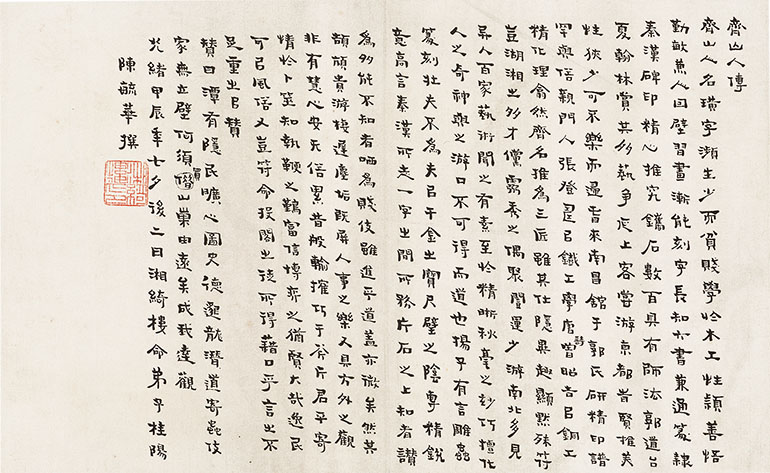 齊山人傳
齊山人名璜字瀕生少而貧賤學於木工性穎善悟
勤敏兼人因壁習畫漸能刻字長知六書兼通篆隸
秦漢碑印精心推究鐫石數百具有師法郭道台
夏翰林賞其多藝爭居上客嘗游京都耆賢推美
性狹少可不樂而還旨來南昌館于郭氏研精印譜
罕與俗親門人張登㠯鐵工學唐曾昭吉㠯銅工
精化理翕然齊名推為三匠雖其仕隱異趣顯默殊符
豈湖湘之多才儻靈秀之偶聚闓運少游南北多見
異人百家藝術聞之有素至於精晰秋毫之妙巧擅化
人之奇神與之游口不可得而道也揚子有言雕蟲
篆刻壯夫不為夫㠯千金之寶尺璧之陰專精銳
意高言秦漢所走一字之間所務片石之上知者讚
為多能不知者哂為賤伎雖進乎道蓋亦微矣然其
頡頏貴游棲遲塵垢既屏人事之樂又具方外之觀
非有慧心安无俗累昔般輸擅巧于斧斤君平寄
情於卜筮知執鞭之鷄富信博弈之猶賢大哉逸民
可㠯風俗又豈符命投閣之徒所得藉口乎言之不
足重之㠯贊
贊曰潭有隱民曠心圖史德邁龍潛道寄蟲伎
家無立壁何須買山巢由遠矣成我達觀
光緒甲辰年七夕後二日湘綺樓命弟子桂陽
陳毓華撰